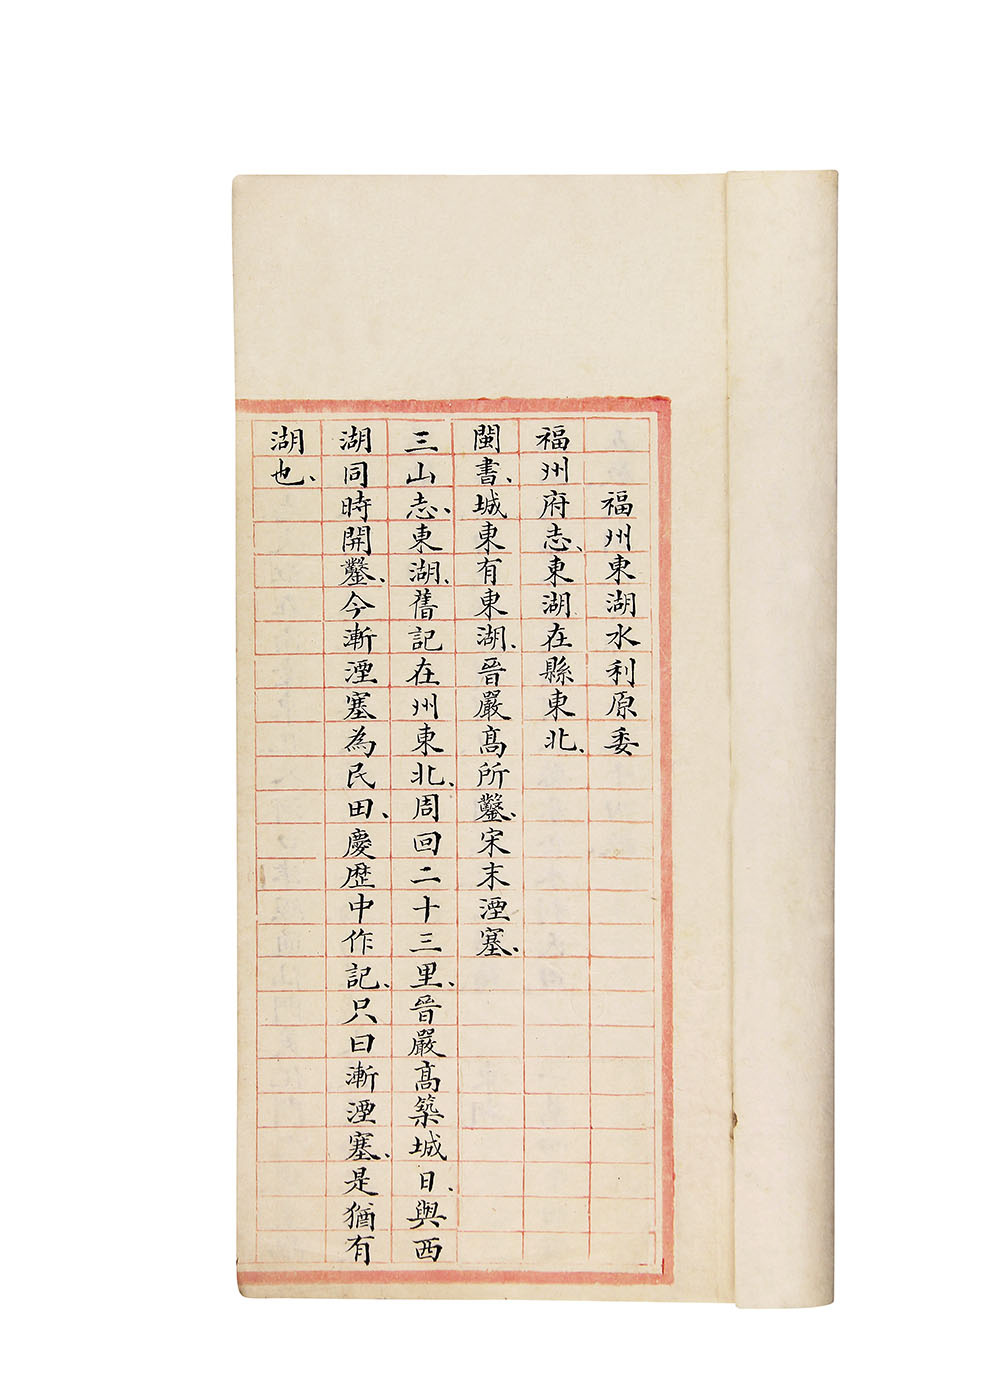 福州東湖水利原委
福州府志、東湖在縣東北、
閩書、城東有東湖、晉嚴高所鑿、宋末湮塞、
三山志、東湖、舊記在州東北、周回二十三里、晉嚴高築城日、與西
湖同時開鑿、今漸湮塞為民田、慶歷中作記、只曰漸湮塞、是猶有
湖也、